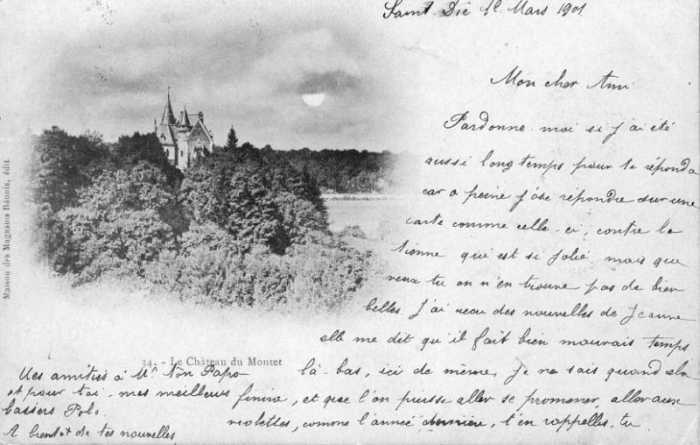 Saint. Dié 12. Mars 1901
Mon cher Ami
Pardonne moi si j'ai été
aussi longtemps pour te répondre
car a peine j'ose répondre sur une
carte comme celle-ci, contre la
tienne qui est si jolie mais que
veux tu on n'en trouve pas de bien
belles. J'ai recu des nouvelles de Jeanne
elle me dit qu'il fait bien mauvais temps
là-bas, ici de même, Je ne sais quand cela
finira, et que l'on puisse aller se promener, aller aux
violettes, comme l'année dernière, t'en rappelles. tu
Mes amitiés à Mr Ton Papa
et pour toi, mes meilleurs
baisers
A bientot de tes nouvelles
34. - Le Château du Montet
Maison des Magasins Réunis, édit.